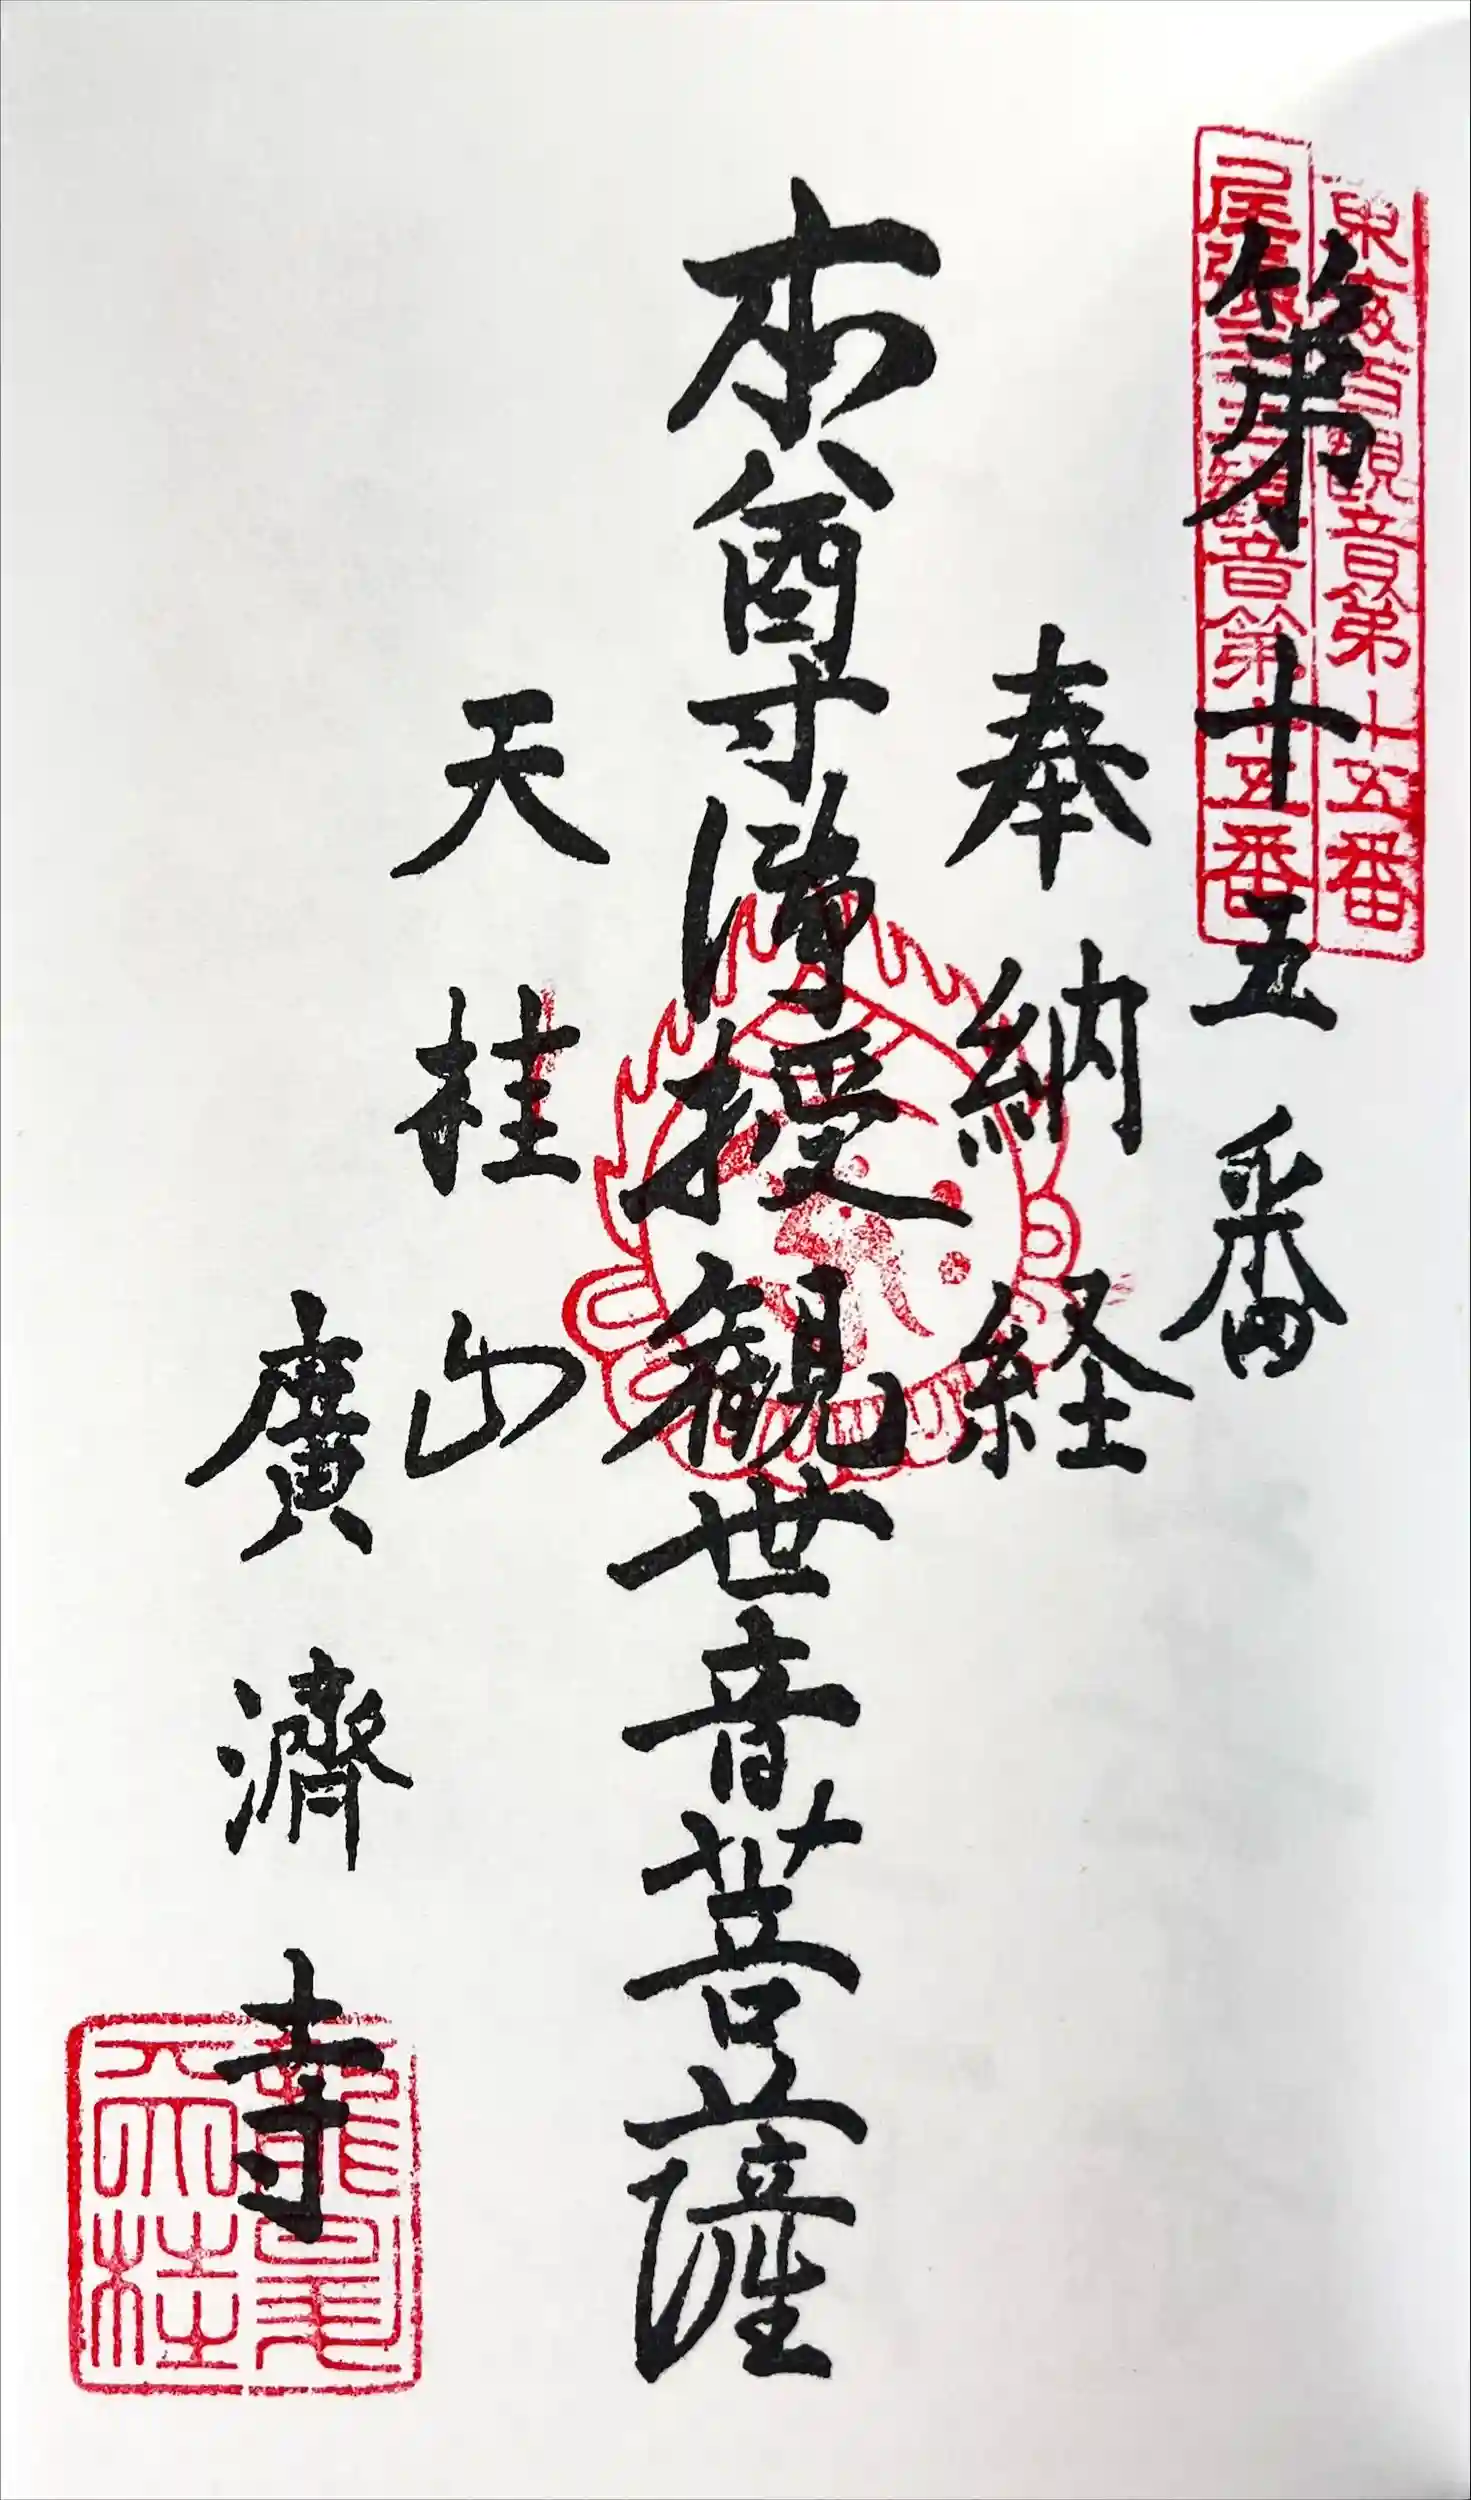 東海百観音第十五番
尾張三十三観音第十五番
第十五番
奉納経
本尊授観世音菩薩
天桂山
廣濟寺